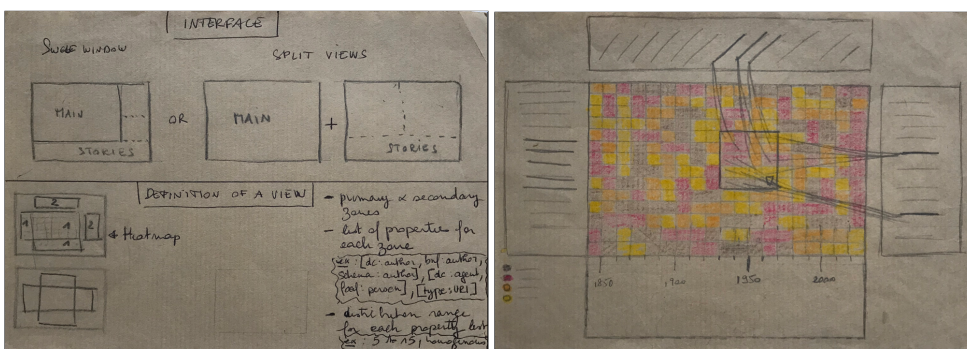 INTERFACE
SINGLE WINDOW
SPLIT VIEWS
MAIN
STORIES
OR
MAIN
+
STORIES
DEFINITION OF A VIEW
2
1
1
2
1
Heatmap
- primary & secondary
zones
- list of properties for
each zone
ex: [dc:author, bnf:author,
schema:author], [dc:agent,
foaf:person], [type:URI]
- distribution range
for each property list
ex: 5 to 15, homogenous
1850
1900
1950
2000